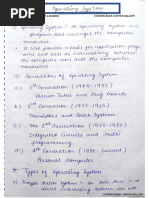 Operating System
COMING BACK CENTER GALLERY
→ Operating System :- An Operating System is a
program that manages the computer
hardware.
• It also provides a basis for application progr-
ams and acts as an intermediary between
the computer user and the computer
hardware.
⇒ Generations of Operating System :-
a.) 1st Generation (1945 - 1955)
Vacuum Tubes and Plug Boards
b.) 2nd Generation (1955 - 1965)
Transistors and Batch Systems
c.) 3rd Generation (1965 - 1980)
Integrated Circuits and Multi-
programming
d.) 4th Generation (1980 - Current)
Personal Computer
Types of Operating System
a.) Simple Batch System :- In this, there is no
direct interaction between the user and